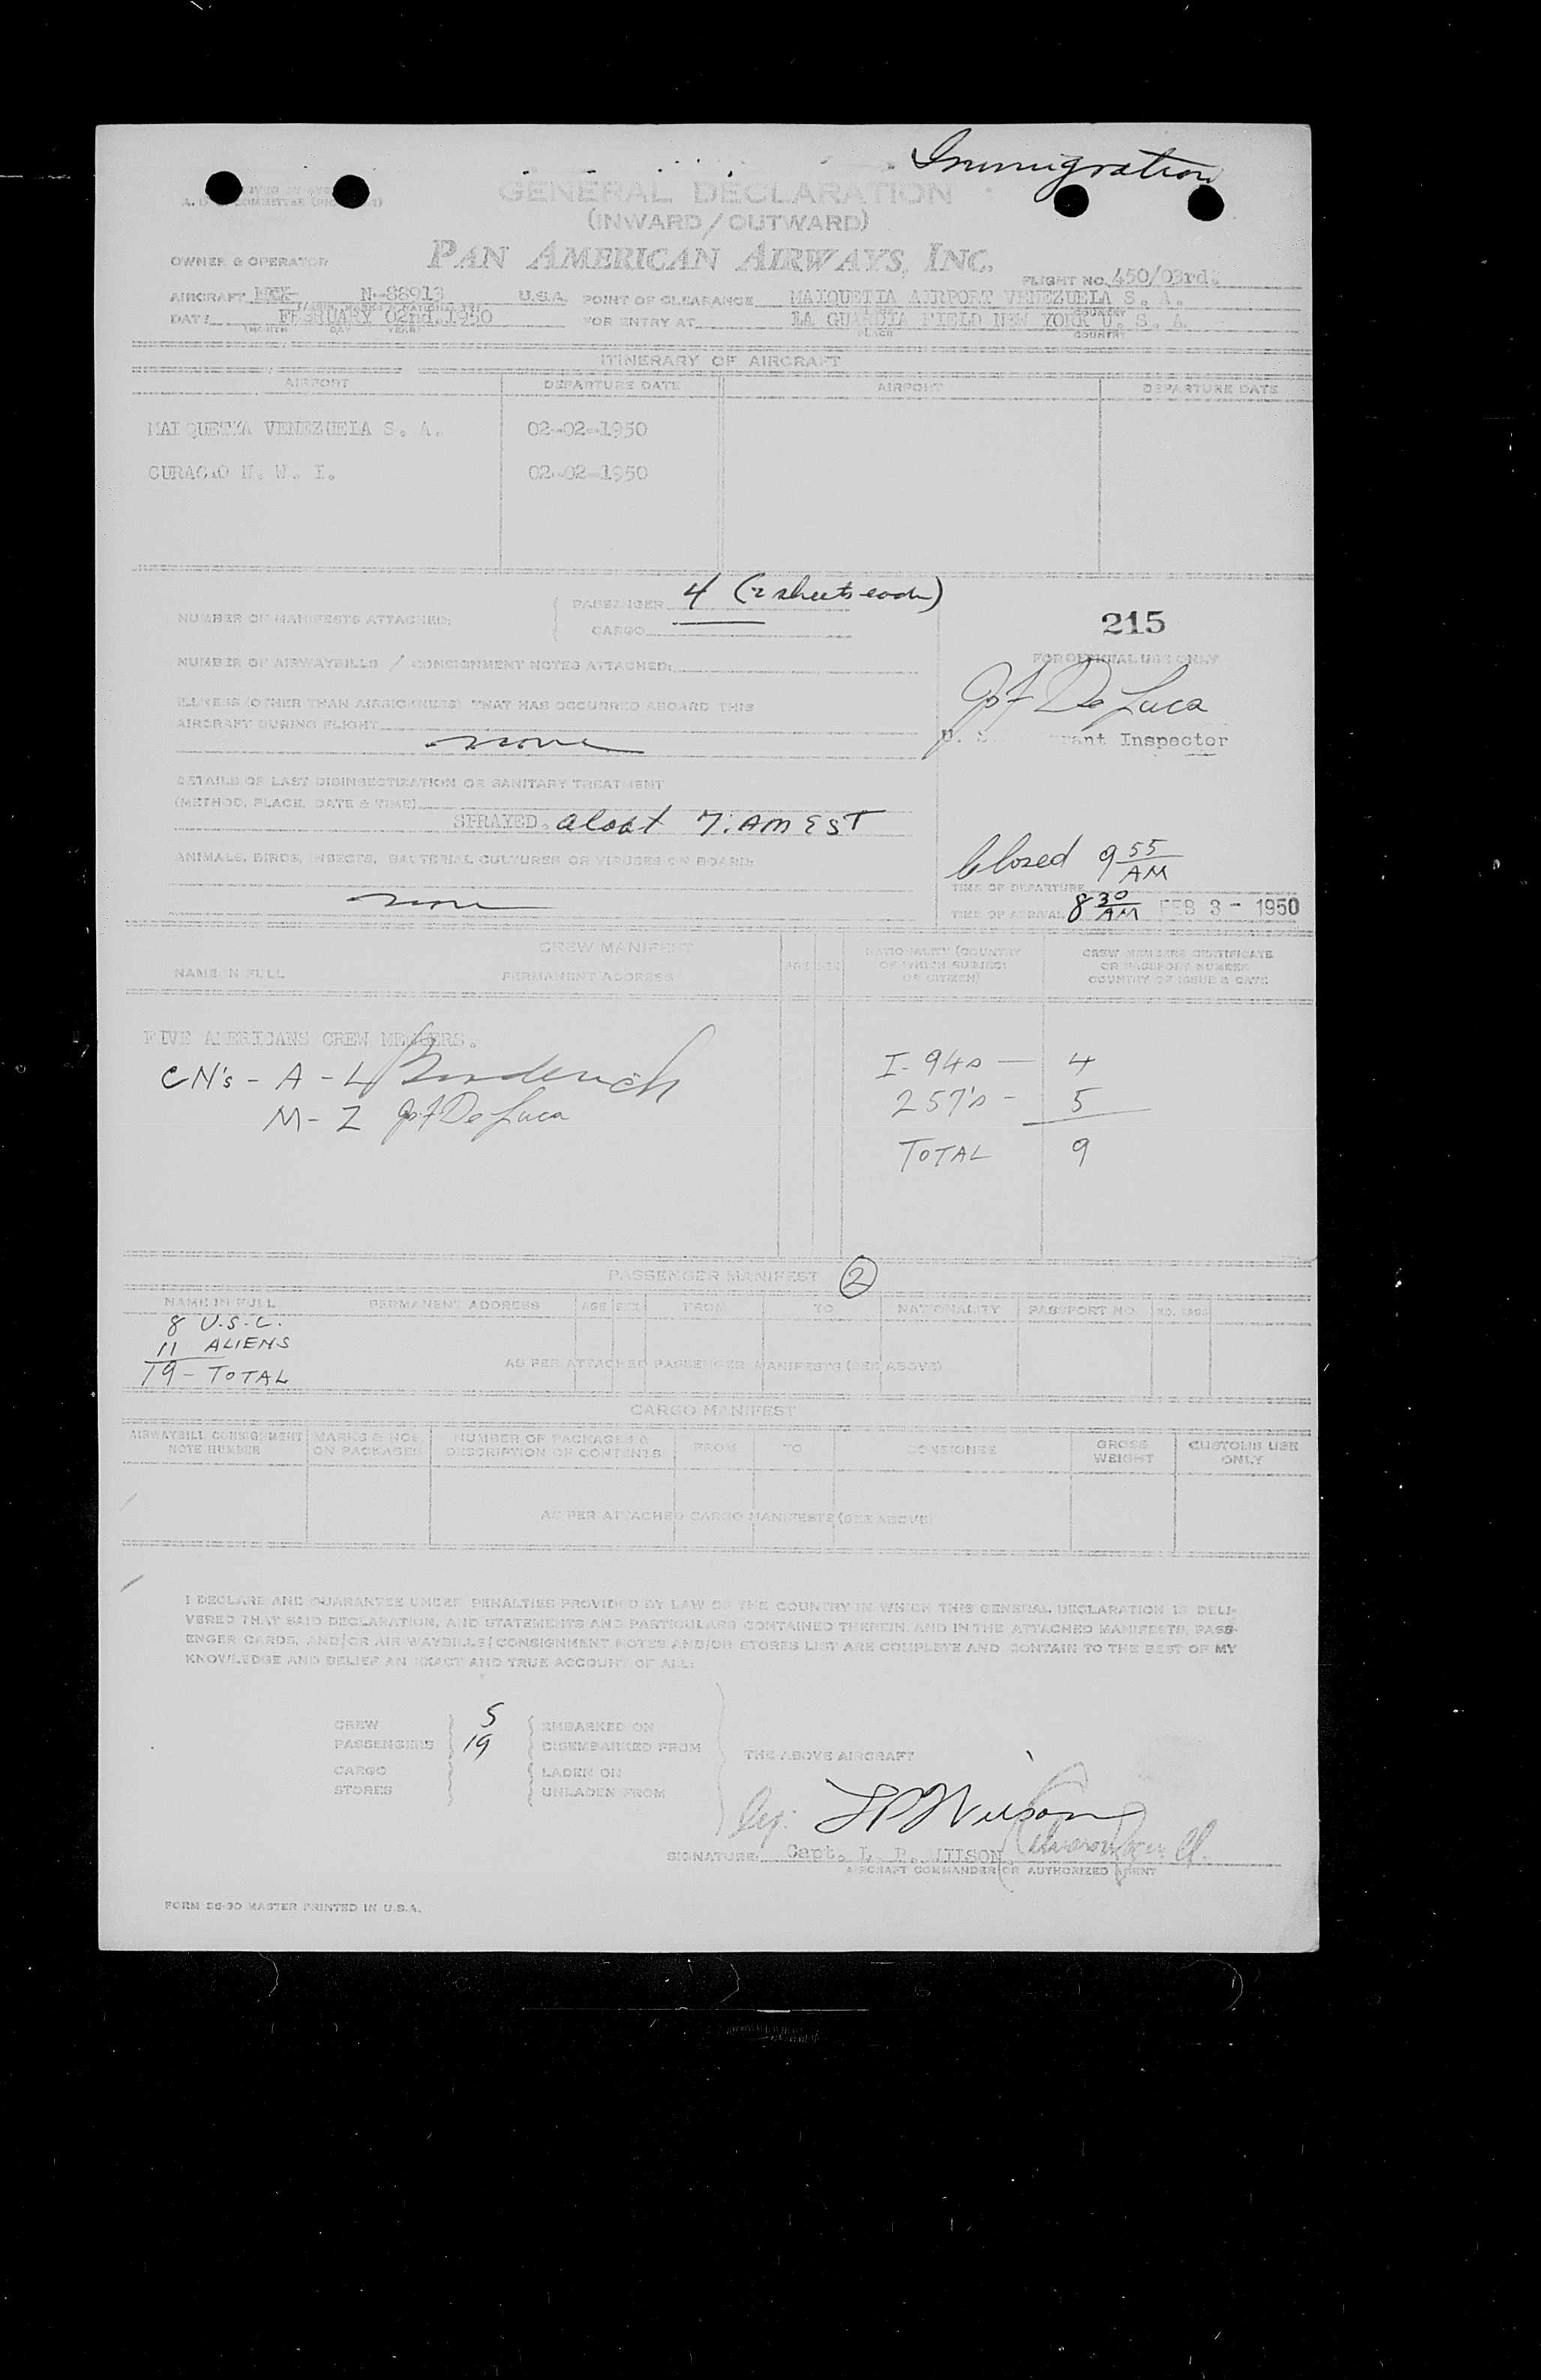 Immigration
GENERAL DECLARATION
(INWARD/OUTWARD)
OWNER & OPERATOR
PAN AMERICAN AIRWAYS, INC.
FLIGHT NO. 450/03rd.
AIRCRAFT N-88913 U.S.A. POINT OF CLEARANCE MAIQUETIA AIRPORT VENEZUELA S. A.
COUNTRY
DATE FEBRUARY 02nd.1950 FOR ENTRY AT LA GUARDIA FIELD NEW YORK U. S. A.
MONTH DAY YEAR PLACE COUNTRY
ITINERARY OF AIRCRAFT
AIRPORT DEPARTURE DATE AIRPORT DEPARTURE DATE
MAIQUETIA VENEZUELA S. A. 02-02-1950
CURACAO N. W. I. 02-02-1950
PASSENGER 4 (2 sheets each)
NUMBER OF MANIFESTS ATTACHED:
CARGO
215
NUMBER OF AIRWAYBILLS / CONSIGNMENT NOTES ATTACHED:
FOR OFFICIAL USE ONLY
ILLNESS (OTHER THAN AIRSICKNESS) THAT HAS OCCURRED ABOARD THIS
AIRCRAFT DURING FLIGHT
none
De Luca
U. S. Inspector
DETAILS OF LAST DISINSECTIZATION OR SANITARY TREATMENT
(METHOD, PLACE, DATE & TIME)
SPRAYED. 7:AM EST
ANIMALS, BIRDS, INSECTS, BACTERIAL CULTURES OR VIRUSES ON BOARD:
none
Closed 9 55 AM
TIME OF DEPARTURE
TIME OF ARRIVAL 8 30 AM FEB 3 - 1950
CREW MANIFEST
NAME IN FULL PERMANENT ADDRESS AGE SEX NATIONALITY (COUNTRY OF WHICH SUBJECT OR CITIZEN) CREW MEMBERS CERTIFICATE OR PASSPORT NUMBER COUNTRY OF ISSUE & DATE
FIVE AMERICANS CREW MEMBERS.
CN's - A - L
M - Z De Luca
I-94s — 4
257's - 5
TOTAL 9
PASSENGER MANIFEST 2
NAME IN FULL PERMANENT ADDRESS AGE SEX FROM TO NATIONALITY PASSPORT NO. NO. BAGS
8 U.S.C.
11 ALIENS
19 - TOTAL
AS PER ATTACHED PASSENGER MANIFESTS (SEE ABOVE)
CARGO MANIFEST
AIRWAYBILL CONSIGNMENT NOTE NUMBER MARKS & NOS. ON PACKAGES NUMBER OF PACKAGES & DESCRIPTION OF CONTENTS FROM TO CONSIGNEE GROSS WEIGHT CUSTOMS USE ONLY
AS PER ATTACHED CARGO MANIFESTS (SEE ABOVE)
I DECLARE AND GUARANTEE UNDER PENALTIES PROVIDED BY LAW OF THE COUNTRY IN WHICH THIS GENERAL DECLARATION IS DELI-
VERED THAT SAID DECLARATION, AND STATEMENTS AND PARTICULARS CONTAINED THEREIN, AND IN THE ATTACHED MANIFESTS, PASS-
ENGER CARDS, AND/OR AIR WAYBILLS/CONSIGNMENT NOTES AND/OR STORES LIST ARE COMPLETE AND CONTAIN TO THE BEST OF MY
KNOWLEDGE AND BELIEF AN EXACT AND TRUE ACCOUNT OF ALL:
CREW 5 EMBARKED ON
PASSENGERS 19 DISEMBARKED FROM
THE ABOVE AIRCRAFT
CARGO LADEN ON
STORES UNLADEN FROM
By: LPWilson
SIGNATURE: Capt. L. P. WILSON
AIRCRAFT COMMANDER OR AUTHORIZED AGENT
FORM DS-90 MASTER PRINTED IN U.S.A.